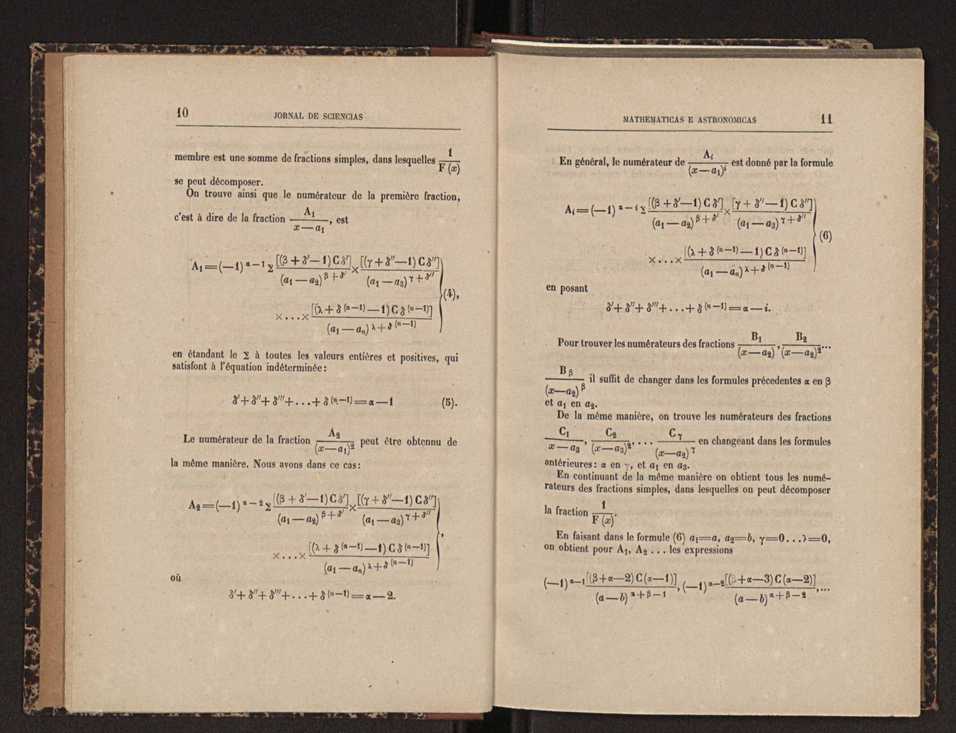 10 JORNAL DE SCIENCIAS
membre est une somme de fractions simples, dans lesquelles 1/F (x)
se peut décomposer.
On trouve ainsi que le numérateur de la première fraction,
c'est à dire de la fraction A₁/(x — a₁), est
A₁=(—1)^(α—1) Σ [(β + δ′—1) C δ′]/(a₁ — a₂)^(β + δ′) × [(γ + δ″—1) C δ″]/(a₁ — a₃)^(γ + δ″)
×...× [(λ + δ^(n—1) — 1) C δ^(n—1)]/(a₁ — aₙ)^(λ + δ^(n—1)) } (4),
en étandant le Σ à toutes les valeurs entières et positives, qui
satisfont à l'équation indéterminée:
δ′+ δ″+ δ‴+...+ δ^(n—1) = α—1 (5).
Le numérateur de la fraction A₂/(x—a₁)² peut être obtennu de
la même manière. Nous avons dans ce cas:
A₂=(—1)^(α—2) Σ [(β + δ′—1) C δ′]/(a₁ — a₂)^(β + δ′) × [(γ + δ″—1) C δ″]/(a₁ — a₃)^(γ + δ″)
×...× [(λ + δ^(n—1) — 1) C δ^(n—1)]/(a₁ — aₙ)^(λ + δ^(n—1)) },
où
δ′+ δ″+ δ‴+...+ δ^(n—1) = α — 2.
MATHEMATICAS E ASTRONOMICAS 11
En général, le numérateur de Aᵢ/(x — a₁)ⁱ est donné par la formule
Aᵢ=(—1)^(α—i) Σ [(β + δ′—1) C δ′]/(a₁ — a₂)^(β + δ′) × [γ + δ″—1) C δ″]/(a₁ — a₃)^(γ + δ″)
×...× [(λ + δ^(n—1) — 1) C δ^(n—1)]/(a₁ — aₙ)^(λ + δ^(n—1)) } (6)
en posant
δ′+ δ″+ δ‴+...+ δ^(n—1) = α — i.
Pour trouver les numérateurs des fractions B₁/(x—a₂), B₂/(x—a₂)²...
B_β/(x—a₂)^β il suffit de changer dans les formules précedentes α en β
et a₁ en a₂.
De la même manière, on trouve les numérateurs des fractions
C₁/(x — a₃), C₂/(x—a₃)², ... C_γ/(x—a₃)^γ en changeant dans les formules
antérieures: α en γ, et a₁ en a₃.
En continuant de la même manière on obtient tous les numé-
rateurs des fractions simples, dans lesquelles on peut décomposer
la fraction 1/F (x).
En faisant dans le formule (6) a₁=a, a₂=b, γ=0...λ=0,
on obtient pour A₁, A₂ ... les expressions
(—1)^(α—1) [(β+α—2) C (α—1)]/(a — b)^(α + β — 1), (—1)^(α—2) [(β+α—3) C (α—2)]/(a — b)^(α + β — 2),...